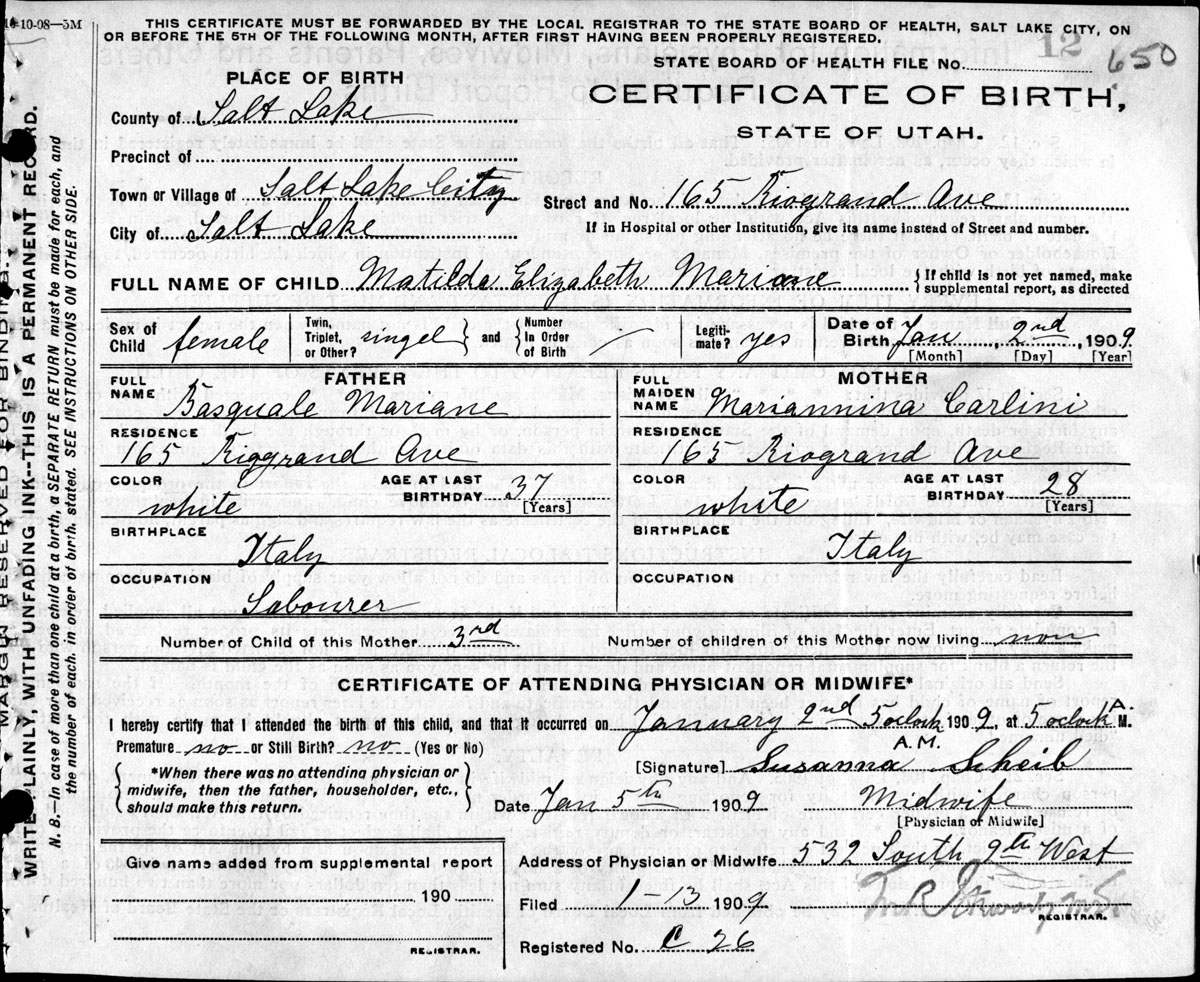 10-10-08—5M
THIS CERTIFICATE MUST BE FORWARDED BY THE LOCAL REGISTRAR TO THE STATE BOARD OF HEALTH, SALT LAKE CITY, ON
OR BEFORE THE 5TH OF THE FOLLOWING MONTH, AFTER FIRST HAVING BEEN PROPERLY REGISTERED.
12
650
STATE BOARD OF HEALTH FILE No.
CERTIFICATE OF BIRTH,
STATE OF UTAH.
PLACE OF BIRTH
County of Salt Lake
Precinct of
Town or Village of Salt Lake City
City of Salt Lake
Street and No. 165 Riogrand Ave
If in Hospital or other Institution, give its name instead of Street and number.
FULL NAME OF CHILD Matilda Elizabeth Mariane
{ If child is not yet named, make
supplemental report, as directed
Sex of Child female
Twin, Triplet, or Other? singel } and { Number In Order of Birth
Legiti-mate? yes
Date of Birth Jan 2nd 1909
[Month] [Day] [Year]
FATHER
FULL NAME Basquale Mariane
RESIDENCE
165 Riogrand Ave
COLOR white
AGE AT LAST BIRTHDAY 37
[Years]
BIRTHPLACE
Italy
OCCUPATION
Labourer
MOTHER
FULL MAIDEN NAME Mariannina Carlini
RESIDENCE
165 Riogrand Ave
COLOR white
AGE AT LAST BIRTHDAY 28
[Years]
BIRTHPLACE
Italy
OCCUPATION
Number of Child of this Mother 3rd
Number of children of this Mother now living non
CERTIFICATE OF ATTENDING PHYSICIAN OR MIDWIFE*
I hereby certify that I attended the birth of this child, and that it occurred on January 2nd 5 oclock 1909, at 5 oclock A. M.
A.M.
Premature no or Still Birth? no (Yes or No)
{ *When there was no attending physician or
midwife, then the father, householder, etc.,
should make this return. }
[Signature] Susanna Scheib
Date Jan 5th 1909
Midwife
[Physician or Midwife]
Give name added from supplemental report
190
REGISTRAR.
Address of Physician or Midwife 532 South 9th West
Filed 1-13 1909
REGISTRAR.
Registered No. C 26
MARGIN RESERVED FOR BINDING.
WRITE PLAINLY WITH UNFADING INK--THIS IS A PERMANENT RECORD.
N. B.—In case of more than one child at birth, a SEPARATE RETURN must be made for each, and
the number of each, in order of birth, stated. SEE INSTRUCTIONS ON OTHER SIDE.